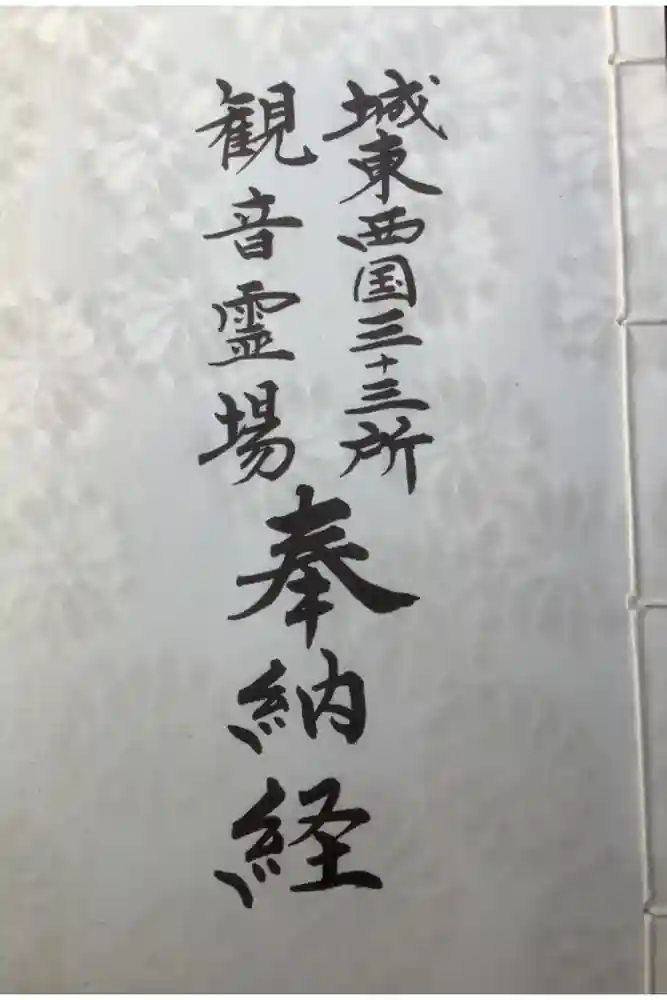 城東西国三十三所
観音霊場
奉納経